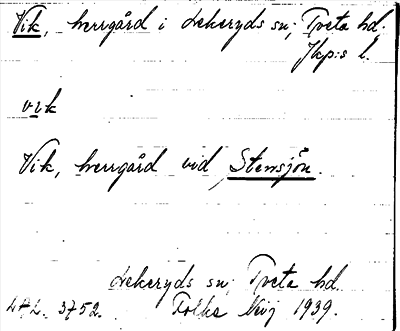 Vik, herrgård i Lekeryds sn; Tveta hd.
Jkp:s l.
vik
Vik, herrgård vid Stensjön.
Lekeryds sn; Tveta hd.
3752. Folke 1939.